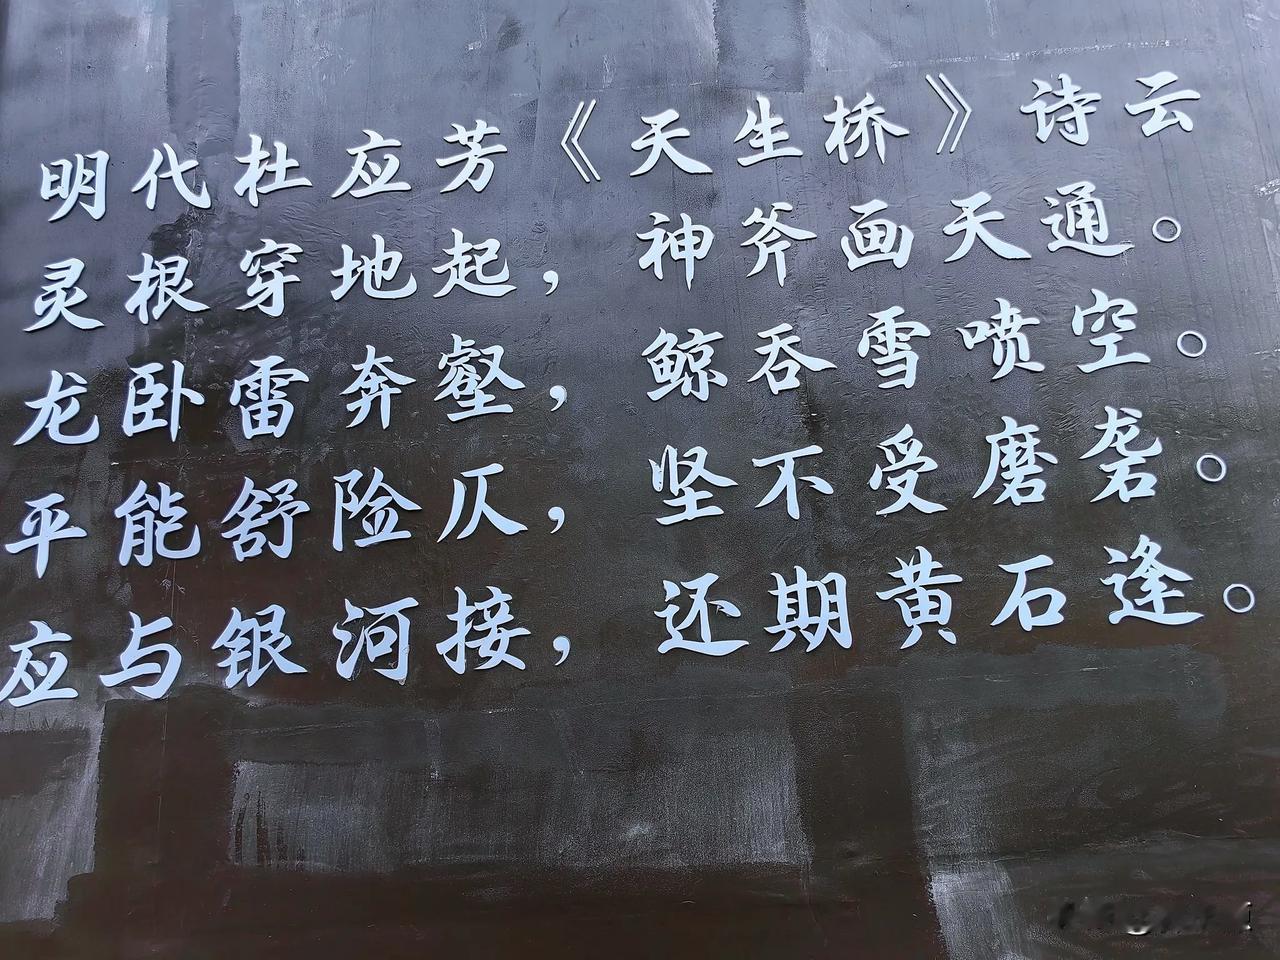 明代杜应芳《天生桥》诗云
灵根穿地起，神斧画天通。
龙卧雷奔壑，鲸吞雪喷空。
平能舒险仄，坚不受磨砻。
应与银河接，还期黄石逢。